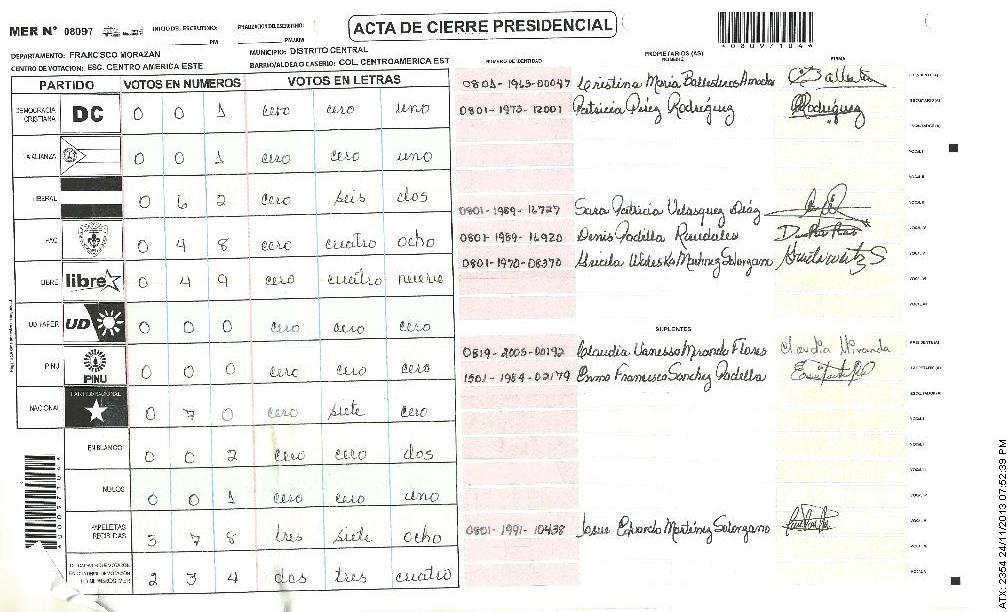 MER Nº 08097 INICIO DEL ESCRUTINIO: PM FINALIZACION DEL ESCRUTINIO: PM/AM
ACTA DE CIERRE PRESIDENCIAL
*8097104*
DEPARTAMENTO: FRANCISCO MORAZAN MUNICIPIO: DISTRITO CENTRAL
CENTRO DE VOTACION: ESC. CENTRO AMERICA ESTE BARRIO/ALDEA O CASERIO: COL. CENTROAMERICA EST
PARTIDO VOTOS EN NUMEROS VOTOS EN LETRAS
DEMOCRACIA CRISTIANA DC 0 0 1 cero cero uno
LA ALIANZA 0 0 1 cero cero uno
LIBERAL 0 6 2 cero seis dos
PAC 0 4 8 cero cuatro ocho
LIBRE libre 0 4 9 cero cuatro nueve
UD/FAPER UD 0 0 0 cero cero cero
PINU PINU 0 0 0 cero cero cero
NACIONAL PARTIDO NACIONAL 0 7 0 cero siete cero
EN BLANCO 0 0 2 cero cero dos
NULOS 0 0 1 cero cero uno
PAPELETAS RECIBIDAS 3 7 8 tres siete ocho
2 3 4 dos tres cuatro
NUMERO DE IDENTIDAD PROPIETARIOS (AS) NOMBRE FIRMA
0801-1963-00047 Cristina Maria Ballesteros PRESIDENTE(A)
0801-1973-12001 Patricia Pérez Rodríguez Rodríguez SECRETARIO(A)
ESCRUTADOR (A)
VOCAL I
VOCAL II
0801-1989-16727 Sara Patricia Velasquez Díaz VOCAL III
0801-1989-16920 Denis Padilla Raudales VOCAL IV
0801-1970-08370 Martinez Solorzano VOCAL V
VOCAL VI
SUPLENTES
0819-2005-00192 Claudia Vanessa Miranda Flores Claudia Miranda PRESIDENTE(A)
1501-1984-02179 Francisco Sanchez Padilla SECRETARIO(A)
ESCRUTADOR(A)
VOCAL I
0801-1991-10438 Josue Eduardo Martinez Solorzano
ATX: 2354 24/11/2013 07:52:39 PM